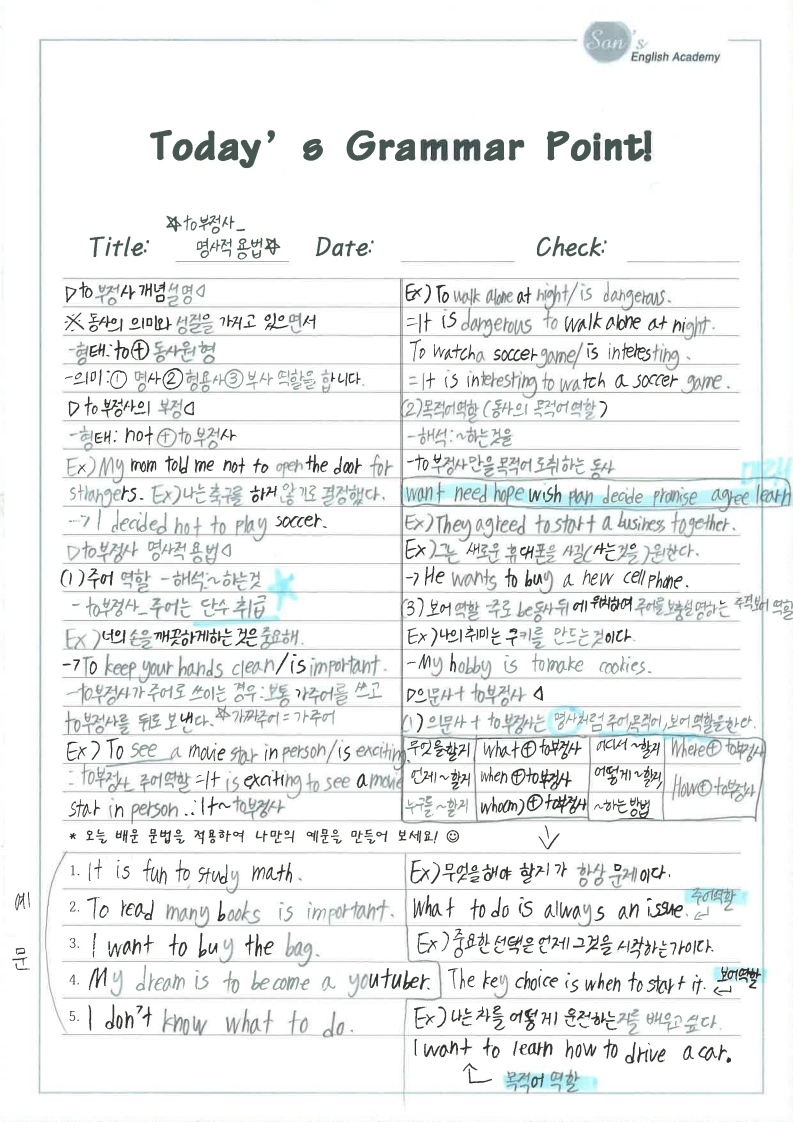 Son's
English Academy
Today's Grammar Point!
☆to부정사_
Title: 명사적 용법☆ Date: Check:
▷to부정사 개념설명◁
※ 동사의 의미와 성질을 가지고 있으면서
-형태: to⊕동사원형
-의미: ① 명사 ② 형용사 ③ 부사 역할을 합니다.
▷to부정사의 부정◁
-형태: not ⊕ to부정사
Ex) My mom told me not to open the door for
strangers. Ex) 나는 축구를 하지 않기로 결정했다.
--> I decided not to play soccer.
▷to부정사 명사적 용법◁
(1) 주어 역할 -해석: ~하는 것
- to부정사_주어는 단수 취급
Ex) 너의 손을 깨끗하게하는 것은 중요해.
-> To keep your hands clean/is important.
-to부정사가 주어로 쓰이는 경우: 보통 가주어를 쓰고
to부정사를 뒤로 보낸다. ☆가짜주어=가주어
Ex) To see a movie star in person/is exciting.
: to부정사 주어역할 = It is exciting to see a movie
star in person ..: It~to부정사
Ex) To walk alone at night/is dangerous.
=It is dangerous to walk alone at night.
To watch a soccer game/is interesting.
=It is interesting to watch a soccer game.
(2) 목적어역할 (동사의 목적어 역할)
-해석: ~하는것을
-to부정사만을 목적어로 취하는 동사
want need hope wish plan decide promise agree learn
Ex) They agreed to start a business together.
Ex) 그는 새로운 휴대폰을 사길(사는것을)원한다.
-> He wants to buy a new cell phone.
(3) 보어 역할 주로 be동사 뒤에 위치하여 주어를 보충설명하는 주격보어 역할
Ex) 나의 취미는 쿠키를 만드는 것이다.
-My hobby is to make cookies.
▷의문사+ to부정사 ◁
(1) 의문사 + to부정사는 명사처럼 주어,목적어,보어 역할을한다.
무엇을할지 what⊕to부정사 어디서~할지 Where⊕to부정사
언제~할지 when⊕to부정사 어떻게~할지, How⊕to부정사
누구를~할지 who(m)⊕to부정사 ~하는 방법
* 오늘 배운 문법을 적용하여 나만의 예문을 만들어 보세요! ☺
예문
1. It is fun to study math.
2. To read many books is important.
3. I want to buy the bag.
4. My dream is to become a youtuber.
5. I don't know what to do.
Ex) 무엇을해야 할지가 항상 문제이다.
주어역할
What to do is always an issue.
Ex) 중요한 선택은 언제 그것을 시작하는가이다.
The key choice is when to start it. 보어역할
Ex) 나는 차를 어떻게 운전하는지를 배우고 싶다.
I want to learn how to drive a car.
목적어 역할